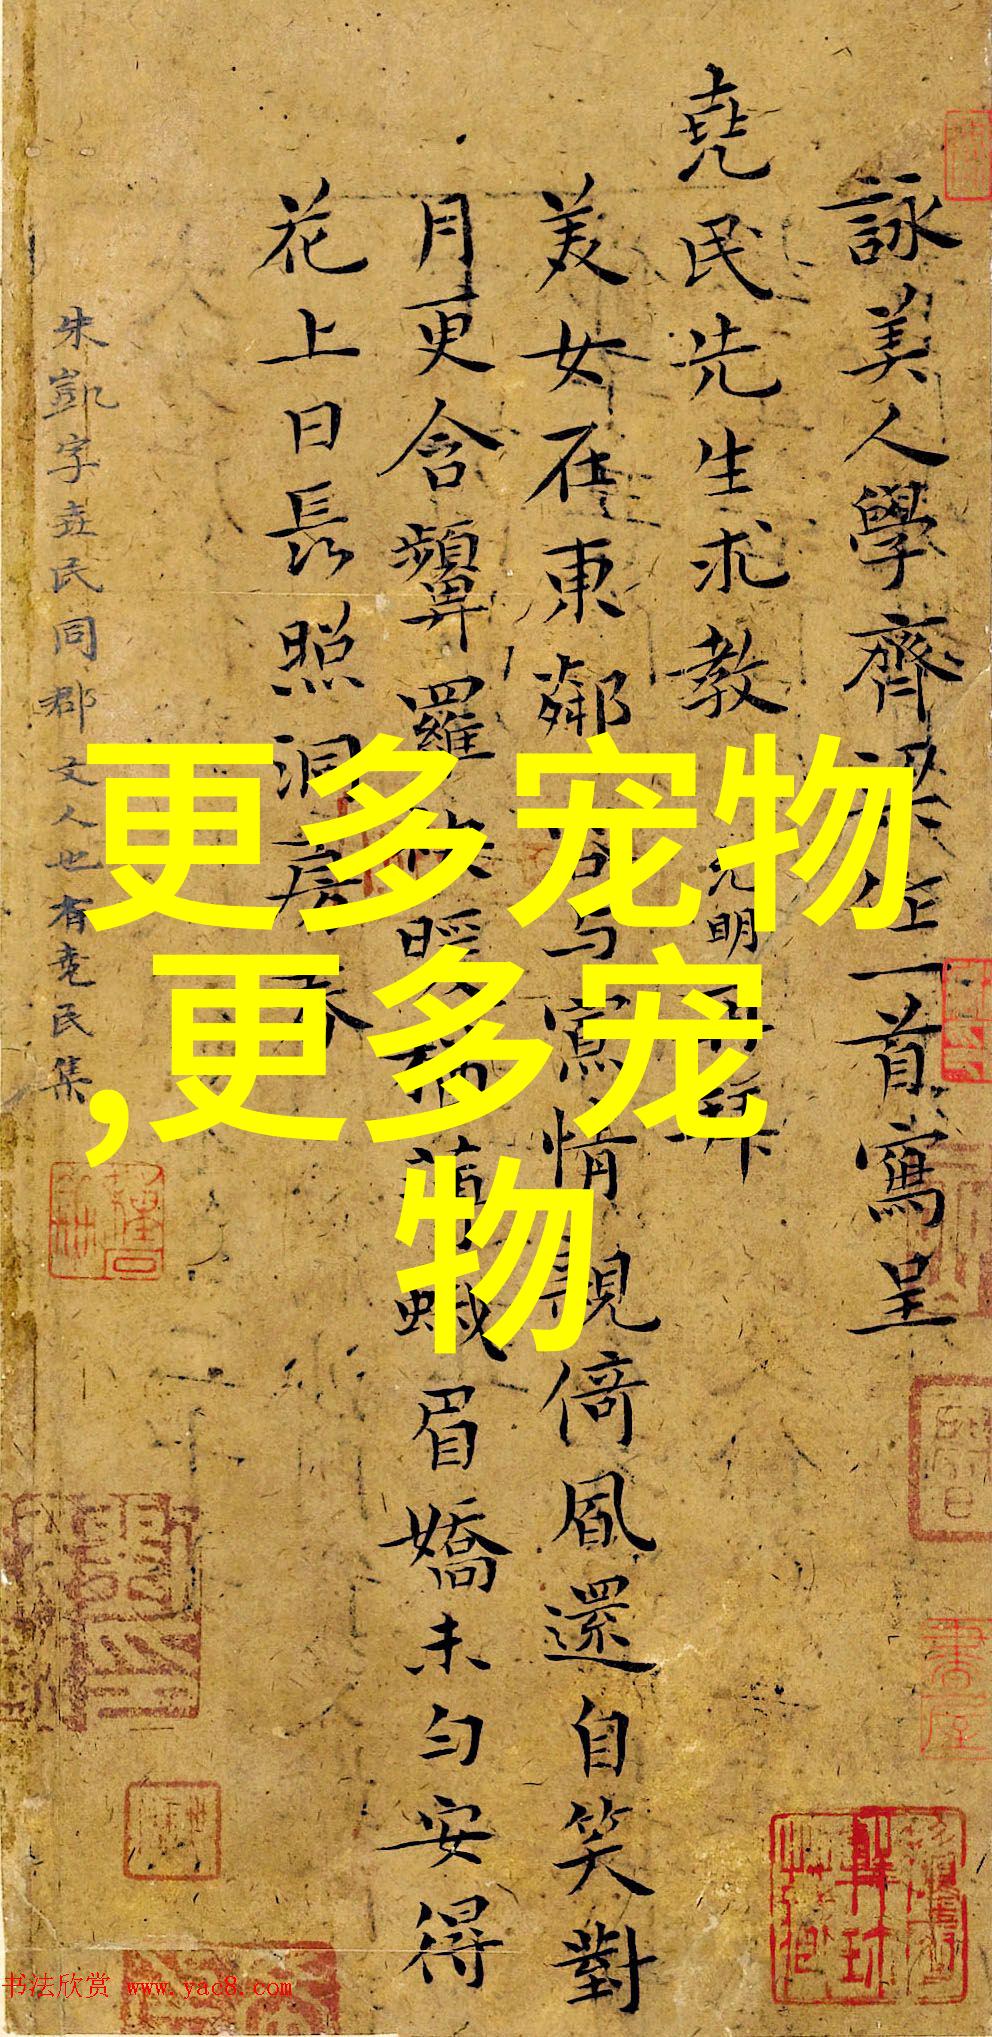 詠美人學齊梁 一首寫呈
堯民先生求教
克明 再拜
美女在東鄰 寫情親倚風還自笑對
月更含顰羅 暖 蛾眉嬌未勻安得
花上日長照洞房春
朱凱字堯民同郡文人也有堯民集
更多宠物
,更多宠
物
书法欣赏 www.yac8.com